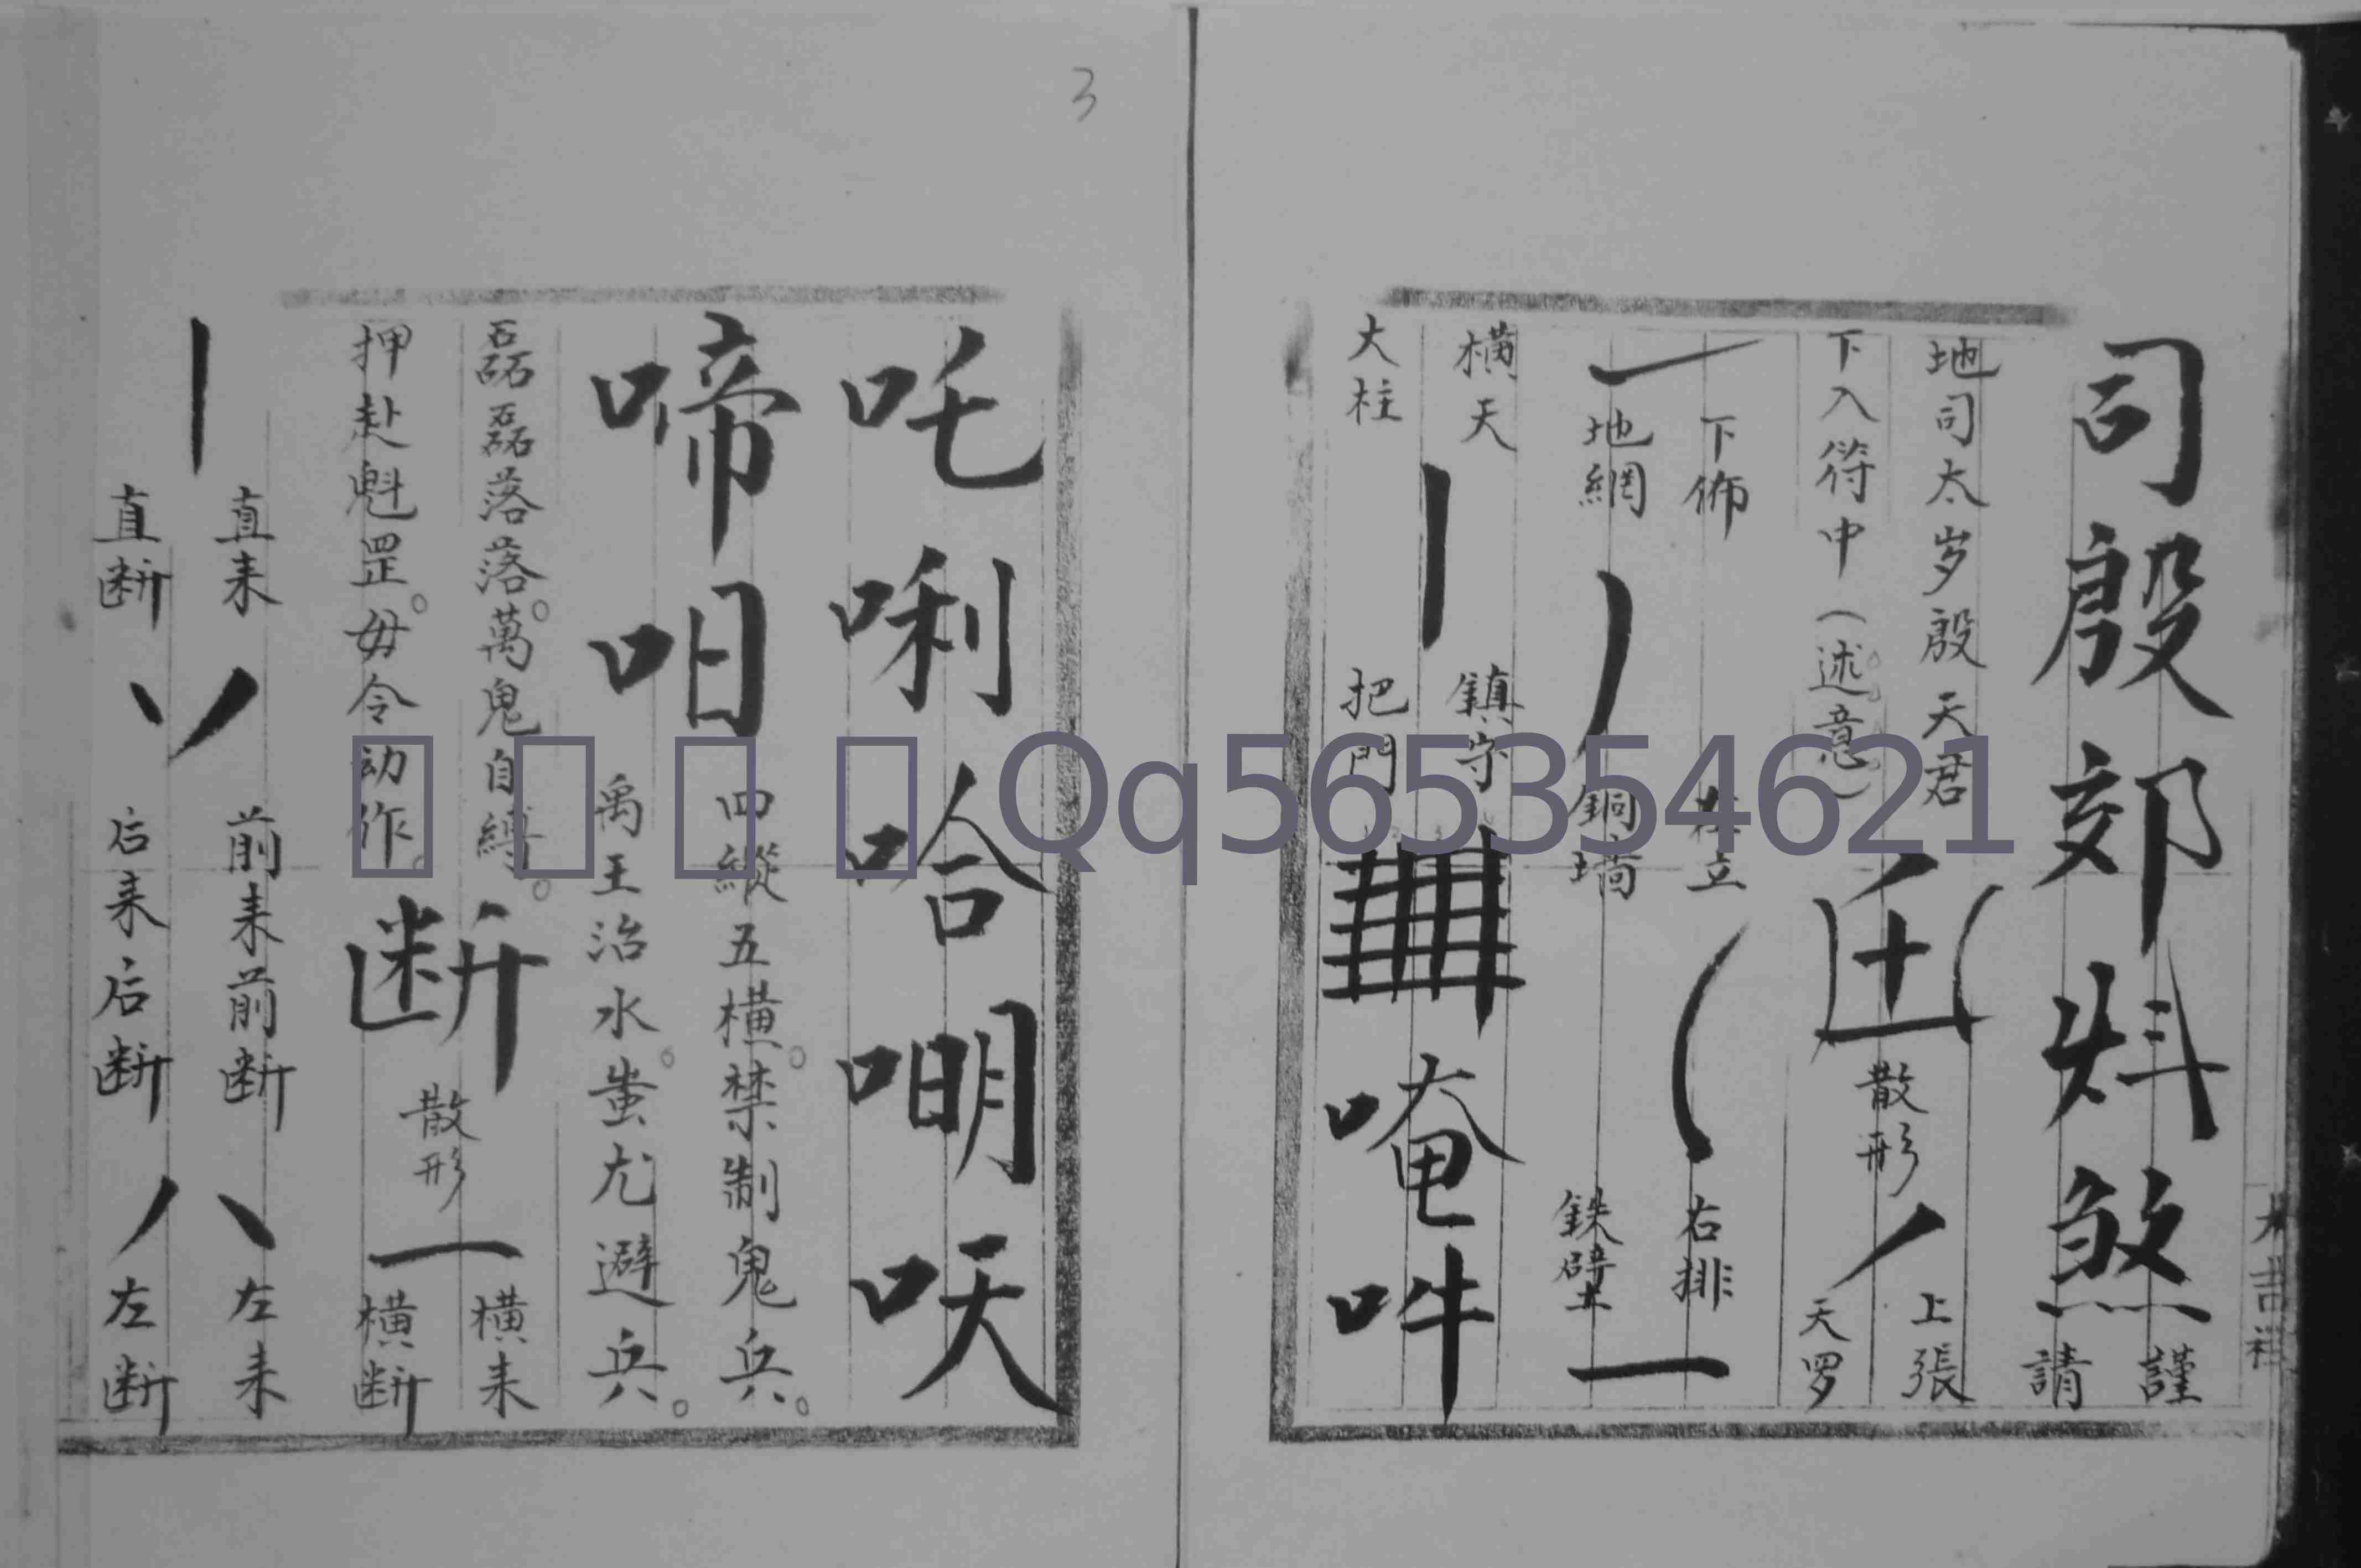 司殷郊㪷煞
謹請
地司太岁殷天君
下入符中（述意）
散形
上張
天罗
下佈
地網
左立
銅墙
右排
鉄壁
橫天
大柱
鎮守
把門
唵吽
大吉祥
3
吒唎哈𠰻㕭
啼呾
四縱五橫。禁制鬼兵。
禹王治水。蚩尤避兵。
磊磊落落。萬鬼自縛。
押赴魁罡。毋令动作。
断
散形
橫来
橫断
直来
直断
前来前断
后来后断
左来
左断
Qq565354621